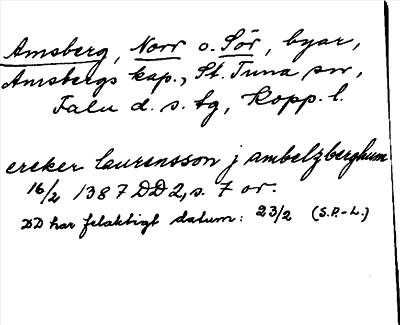 Amsberg, Norr o. Sör, byar,
Amsbergs kap., St. Tuna sn,
Falu d. s. tg, Kopp. l.
ereker laurensson j ambelzberghum
16/2 1387 DD2, s. 7 or.
DD har felaktigt datum: 23/2 (S.P.-L.)